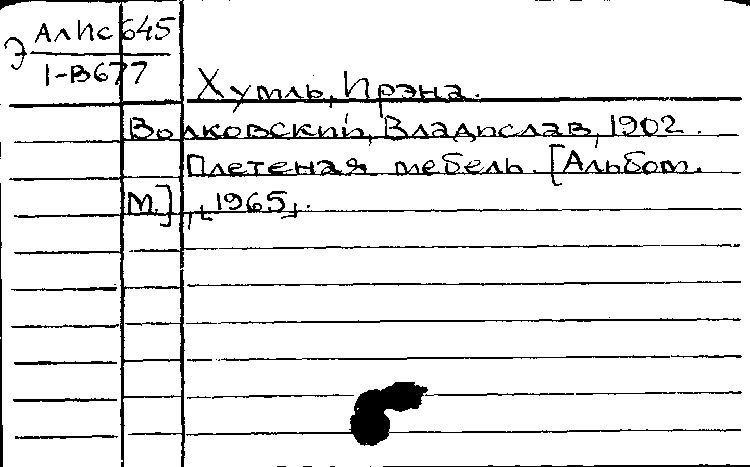 Э АлИс 645
1-В677
Хумль, Ирэна.
Волковский, Владислав, 1902.
Плетеная мебель. [Альбом.
М.], [1965].